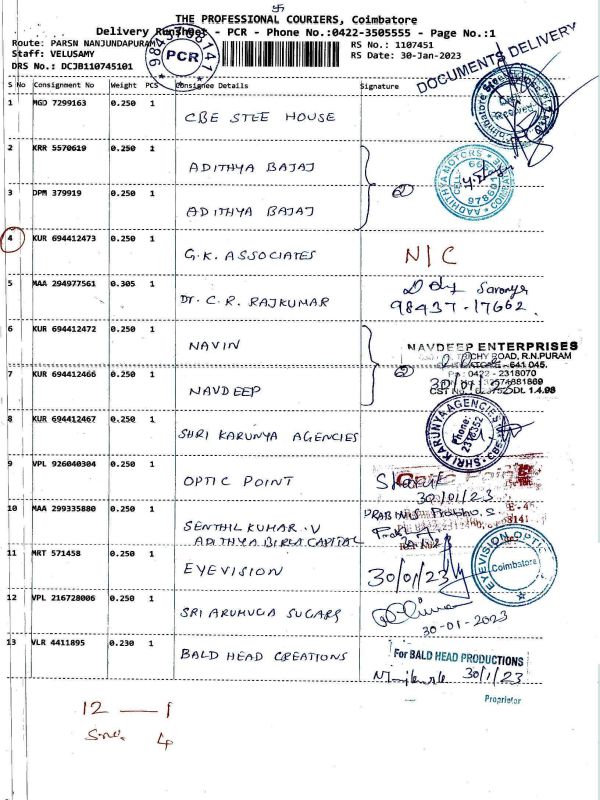 卐
THE PROFESSIONAL COURIERS, Coimbatore
Delivery Runsheet - PCR - Phone No.:0422-3505555 - Page No.:1
Route: PARSN NANJUNDAPURAM
RS No.: 1107451
Staff: VELUSAMY
RS Date: 30-Jan-2023
DRS No.: DCJB110745101
PCR
DOCUMENTS DELIVERY
S No Consignment No Weight PCS Consignee Details Signature
1 MGD 7299163 0.250 1 CBE STEE HOUSE
2 KRR 5570619 0.250 1 ADITHYA BAJAJ
AADHITHYA MOTORS
3 DPM 379919 0.250 1 ADITHYA BAJAJ
4 KUR 694412473 0.250 1 G.K. ASSOCIATES N/C
5 MAA 294977561 0.305 1 Dr. C. R. RAJKUMAR Saranya
98437-17662.
6 KUR 694412472 0.250 1 NAVIN
NAVDEEP ENTERPRISES
TRICHY ROAD, R.N.PURAM
COIMBATORE - 641 045.
0422 - 2318070
7 KUR 694412466 0.250 1 NAVDEEP 30/01/23
DDL 1.4.98
8 KUR 694412467 0.250 1 SHRI KARUNYA AGENCIES
SHRI KARUNYA AGENCIES CBE
Phone: 2316352
9 VPL 926040304 0.250 1 OPTIC POINT
Optic Point
30/01/23
10 MAA 299335880 0.250 1 SENTHIL KUMAR.V
ADITHYA BIRLA CAPITAL
Prabhu.S.
11 MRT 571458 0.250 1 EYEVISION 30/01/23
EYEVISION OPTIC
Coimbatore
12 VPL 216728006 0.250 1 SRI ARUMUGA SUGARS
30-01-2023
13 VLR 4411895 0.230 1 BALD HEAD CREATIONS
For BALD HEAD PRODUCTIONS
30/1/23
Proprietor
12 — 1
S.no. 4